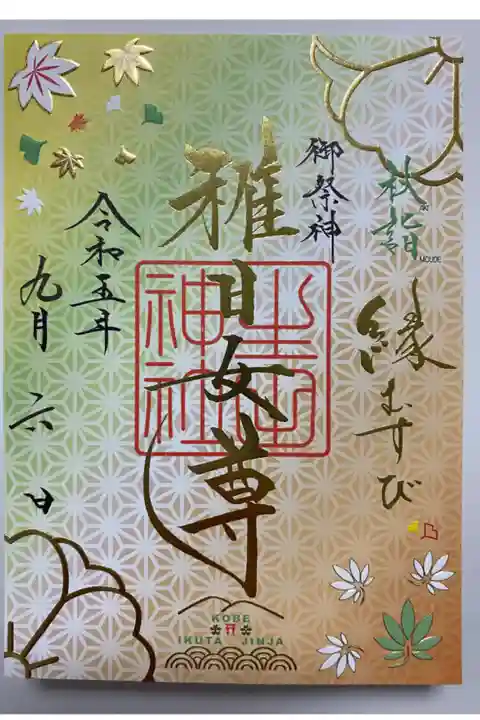 秋詣
AKI
MOUDE
縁むすび
御祭神
稚日女尊
生田神社
令和五年
九月六日
KOBE
IKUTA JINJA